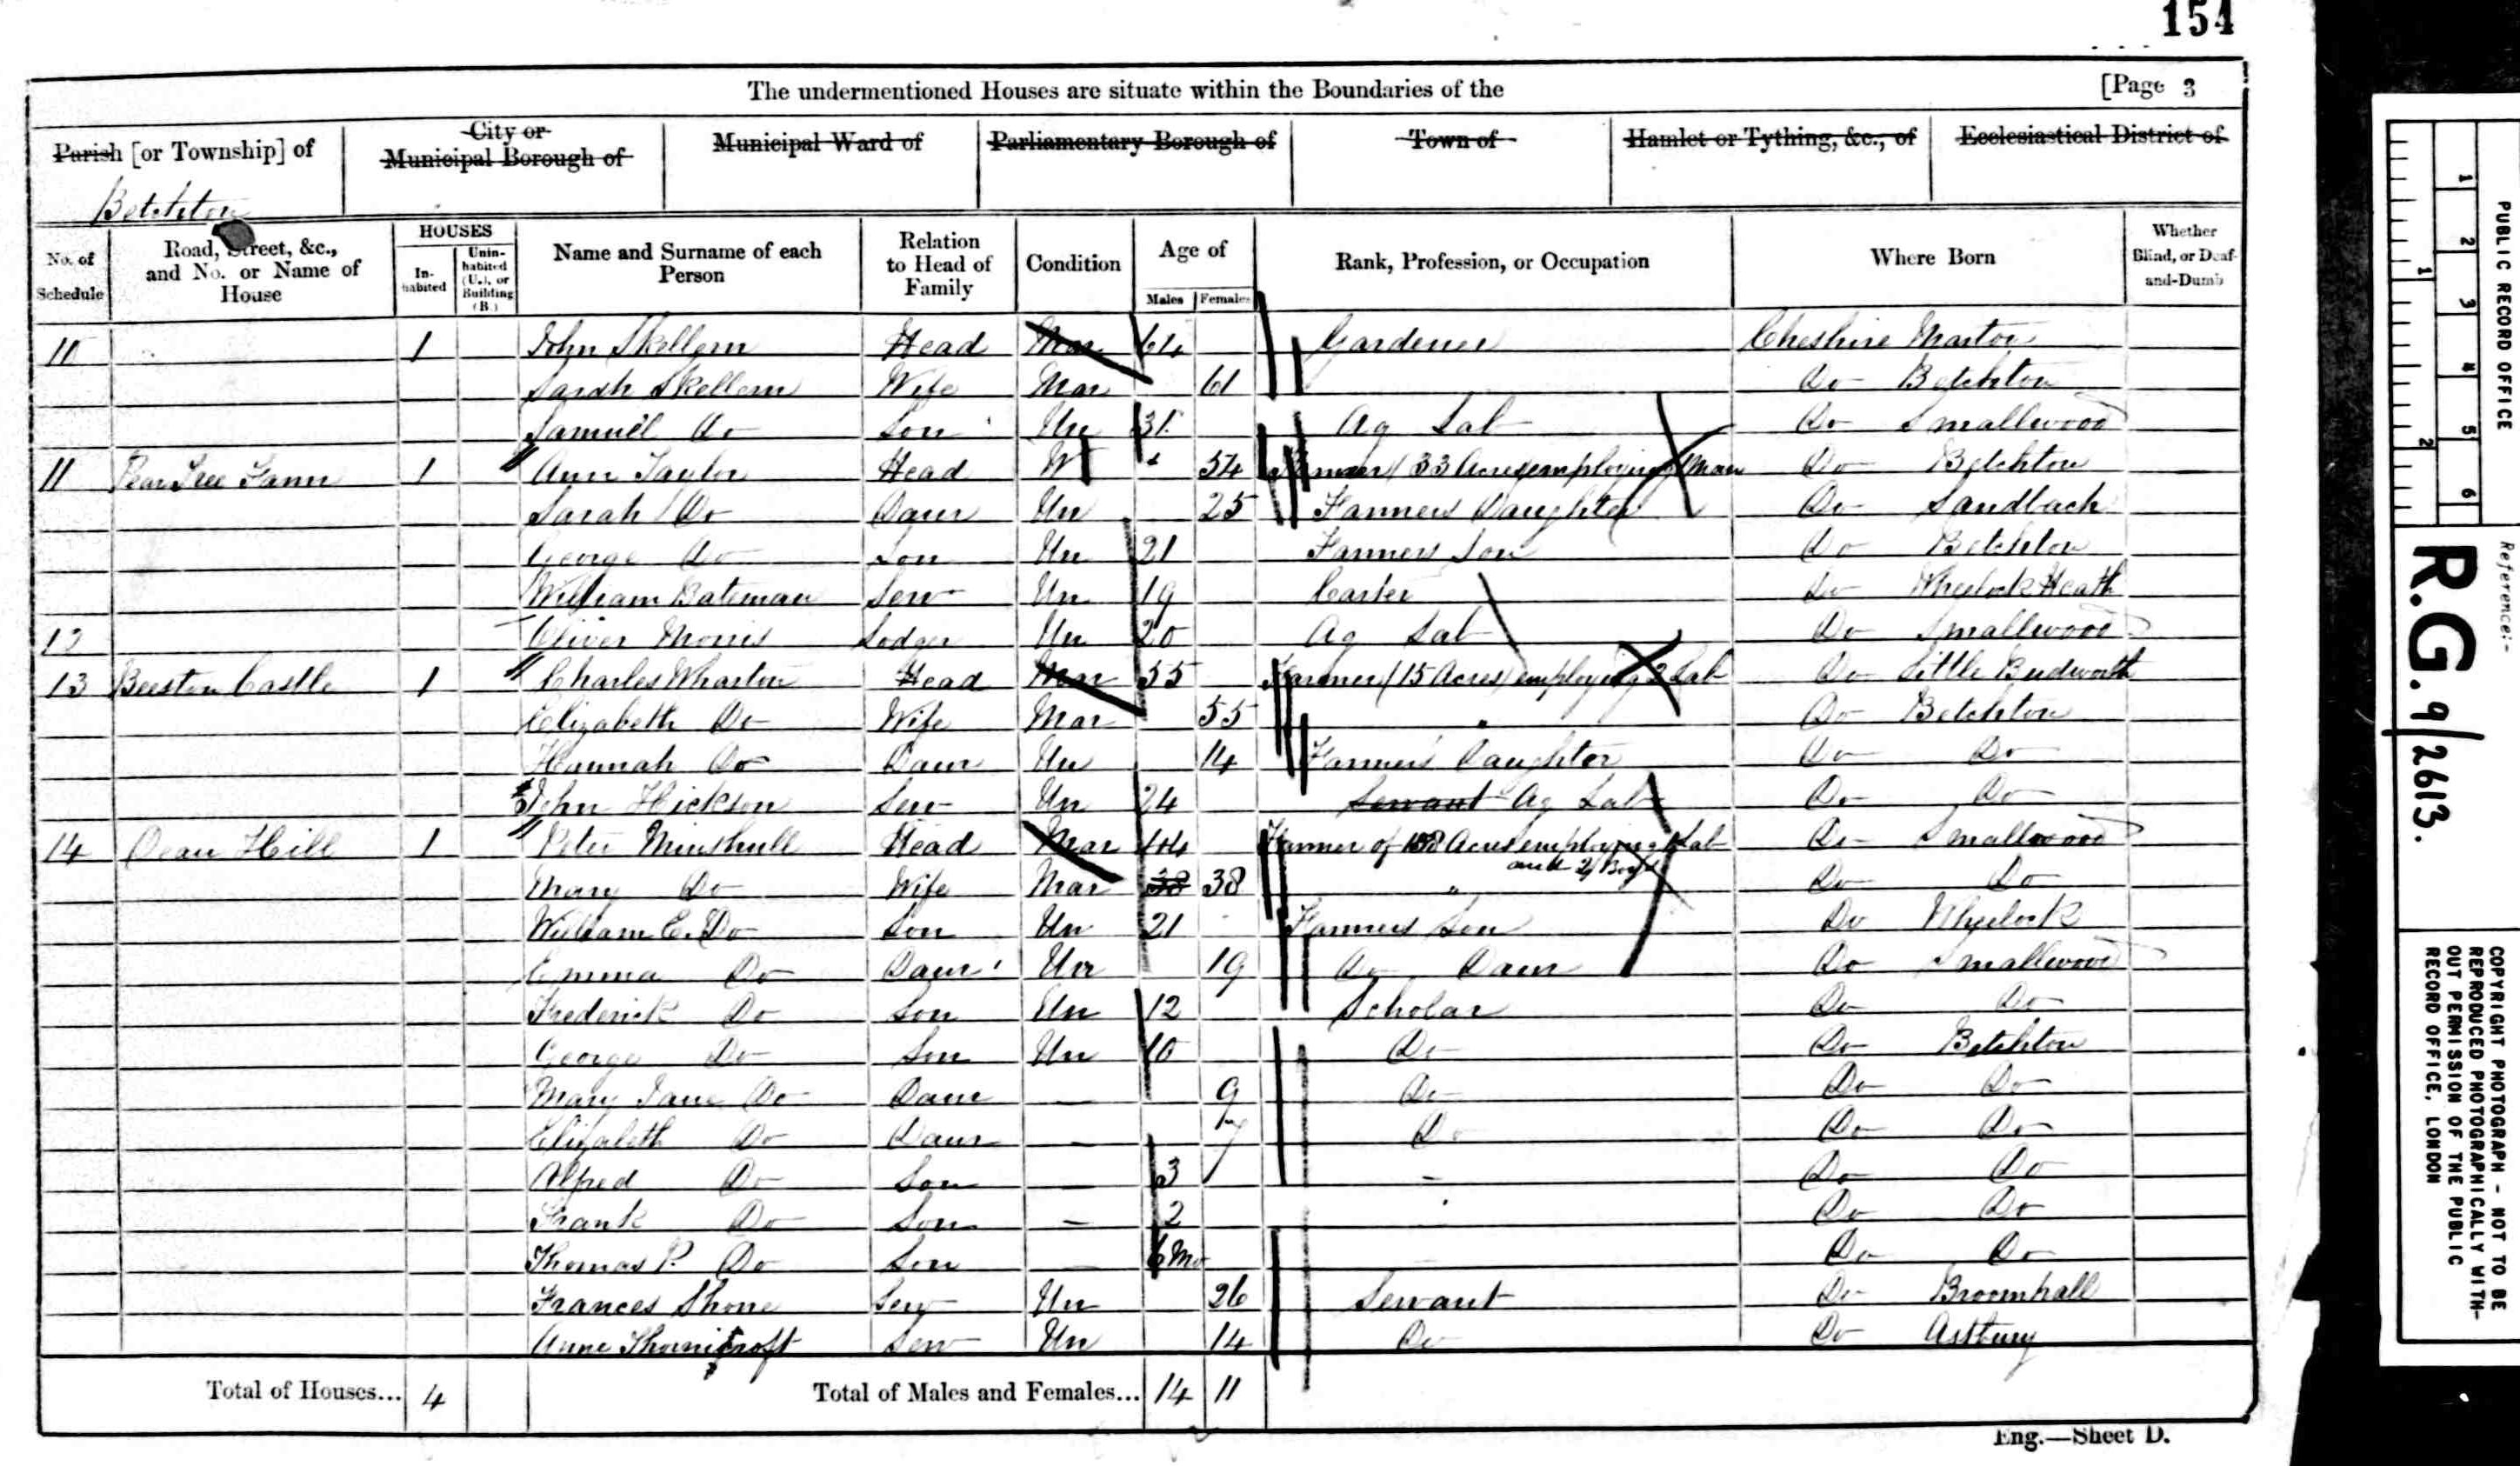 154
The undermentioned Houses are situate within the Boundaries of the [Page 3
Parish [or Township] of City or Municipal Borough of Municipal Ward of Parliamentary Borough of Town of Hamlet or Tything, &c., of Ecclesiastical District of
Betchton
No. of Schedule Road, Street, &c., and No. or Name of House HOUSES Inhabited Uninhabited (U.), or Building (B.) Name and Surname of each Person Relation to Head of Family Condition Age of Males Females Rank, Profession, or Occupation Where Born Whether Blind, or Deaf-and-Dumb
10 1 John Skellern Head Mar 64 Gardener Cheshire Marton
Sarah Skellern Wife Mar 61 Do Betchton
Samuel Do Son Un 31 Ag Lab Do Smallwood
11 Pear Tree Farm 1 Ann Taylor Head W 54 Farmer (33 Acres employing 1 Man Do Betchton
Sarah Do Daur Un 25 Farmers Daughter Do Sandbach
George Do Son Un 21 Farmers Son Do Betchton
William Bateman Serv Un 19 Carter Do Wheelock Heath
12 Oliver Morris Lodger Un 20 Ag Lab Do Smallwood
13 Beeston Castle 1 Charles Wharton Head Mar 55 Farmer (15 Acres) employing 2 Lab Do Little Budworth
Elizabeth Do Wife Mar 55 " Do Betchton
Hannah Do Daur Un 14 Farmer's Daughter Do Do
John Hickson Serv Un 24 Servant Ag Lab Do Do
14 Dean Hill 1 Peter Minshull Head Mar 44 Farmer of 158 Acres employing 1 Lab Do Smallwood
and 2 Boys
Mary Do Wife Mar 38 38 " Do Do
William E. Do Son Un 21 Farmers Son Do Wheelock
Emma Do Daur Un 19 Do Daur Do Smallwood
Frederick Do Son Un 12 Scholar Do Do
George Do Son Un 10 Do Do Betchton
Mary Jane Do Daur — 9 Do Do Do
Elizabeth Do Daur — 7 Do Do Do
Alfred Do Son — 3 - Do Do
Frank Do Son — 2 Do Do
Thomas P. Do Son — 6 Mo — Do Do
Frances Shone Serv Un 26 Servant Do Broomhall
Anne Thornicroft Serv Un 14 Do Do Astbury
Total of Houses... 4 Total of Males and Females... 14 11
Eng.—Sheet D.
1 2 3 4 5 6
1 2
PUBLIC RECORD OFFICE
Reference:-
R.G. 9/2613.
COPYRIGHT PHOTOGRAPH - NOT TO BE
REPRODUCED PHOTOGRAPHICALLY WITH-
OUT PERMISSION OF THE PUBLIC
RECORD OFFICE, LONDON